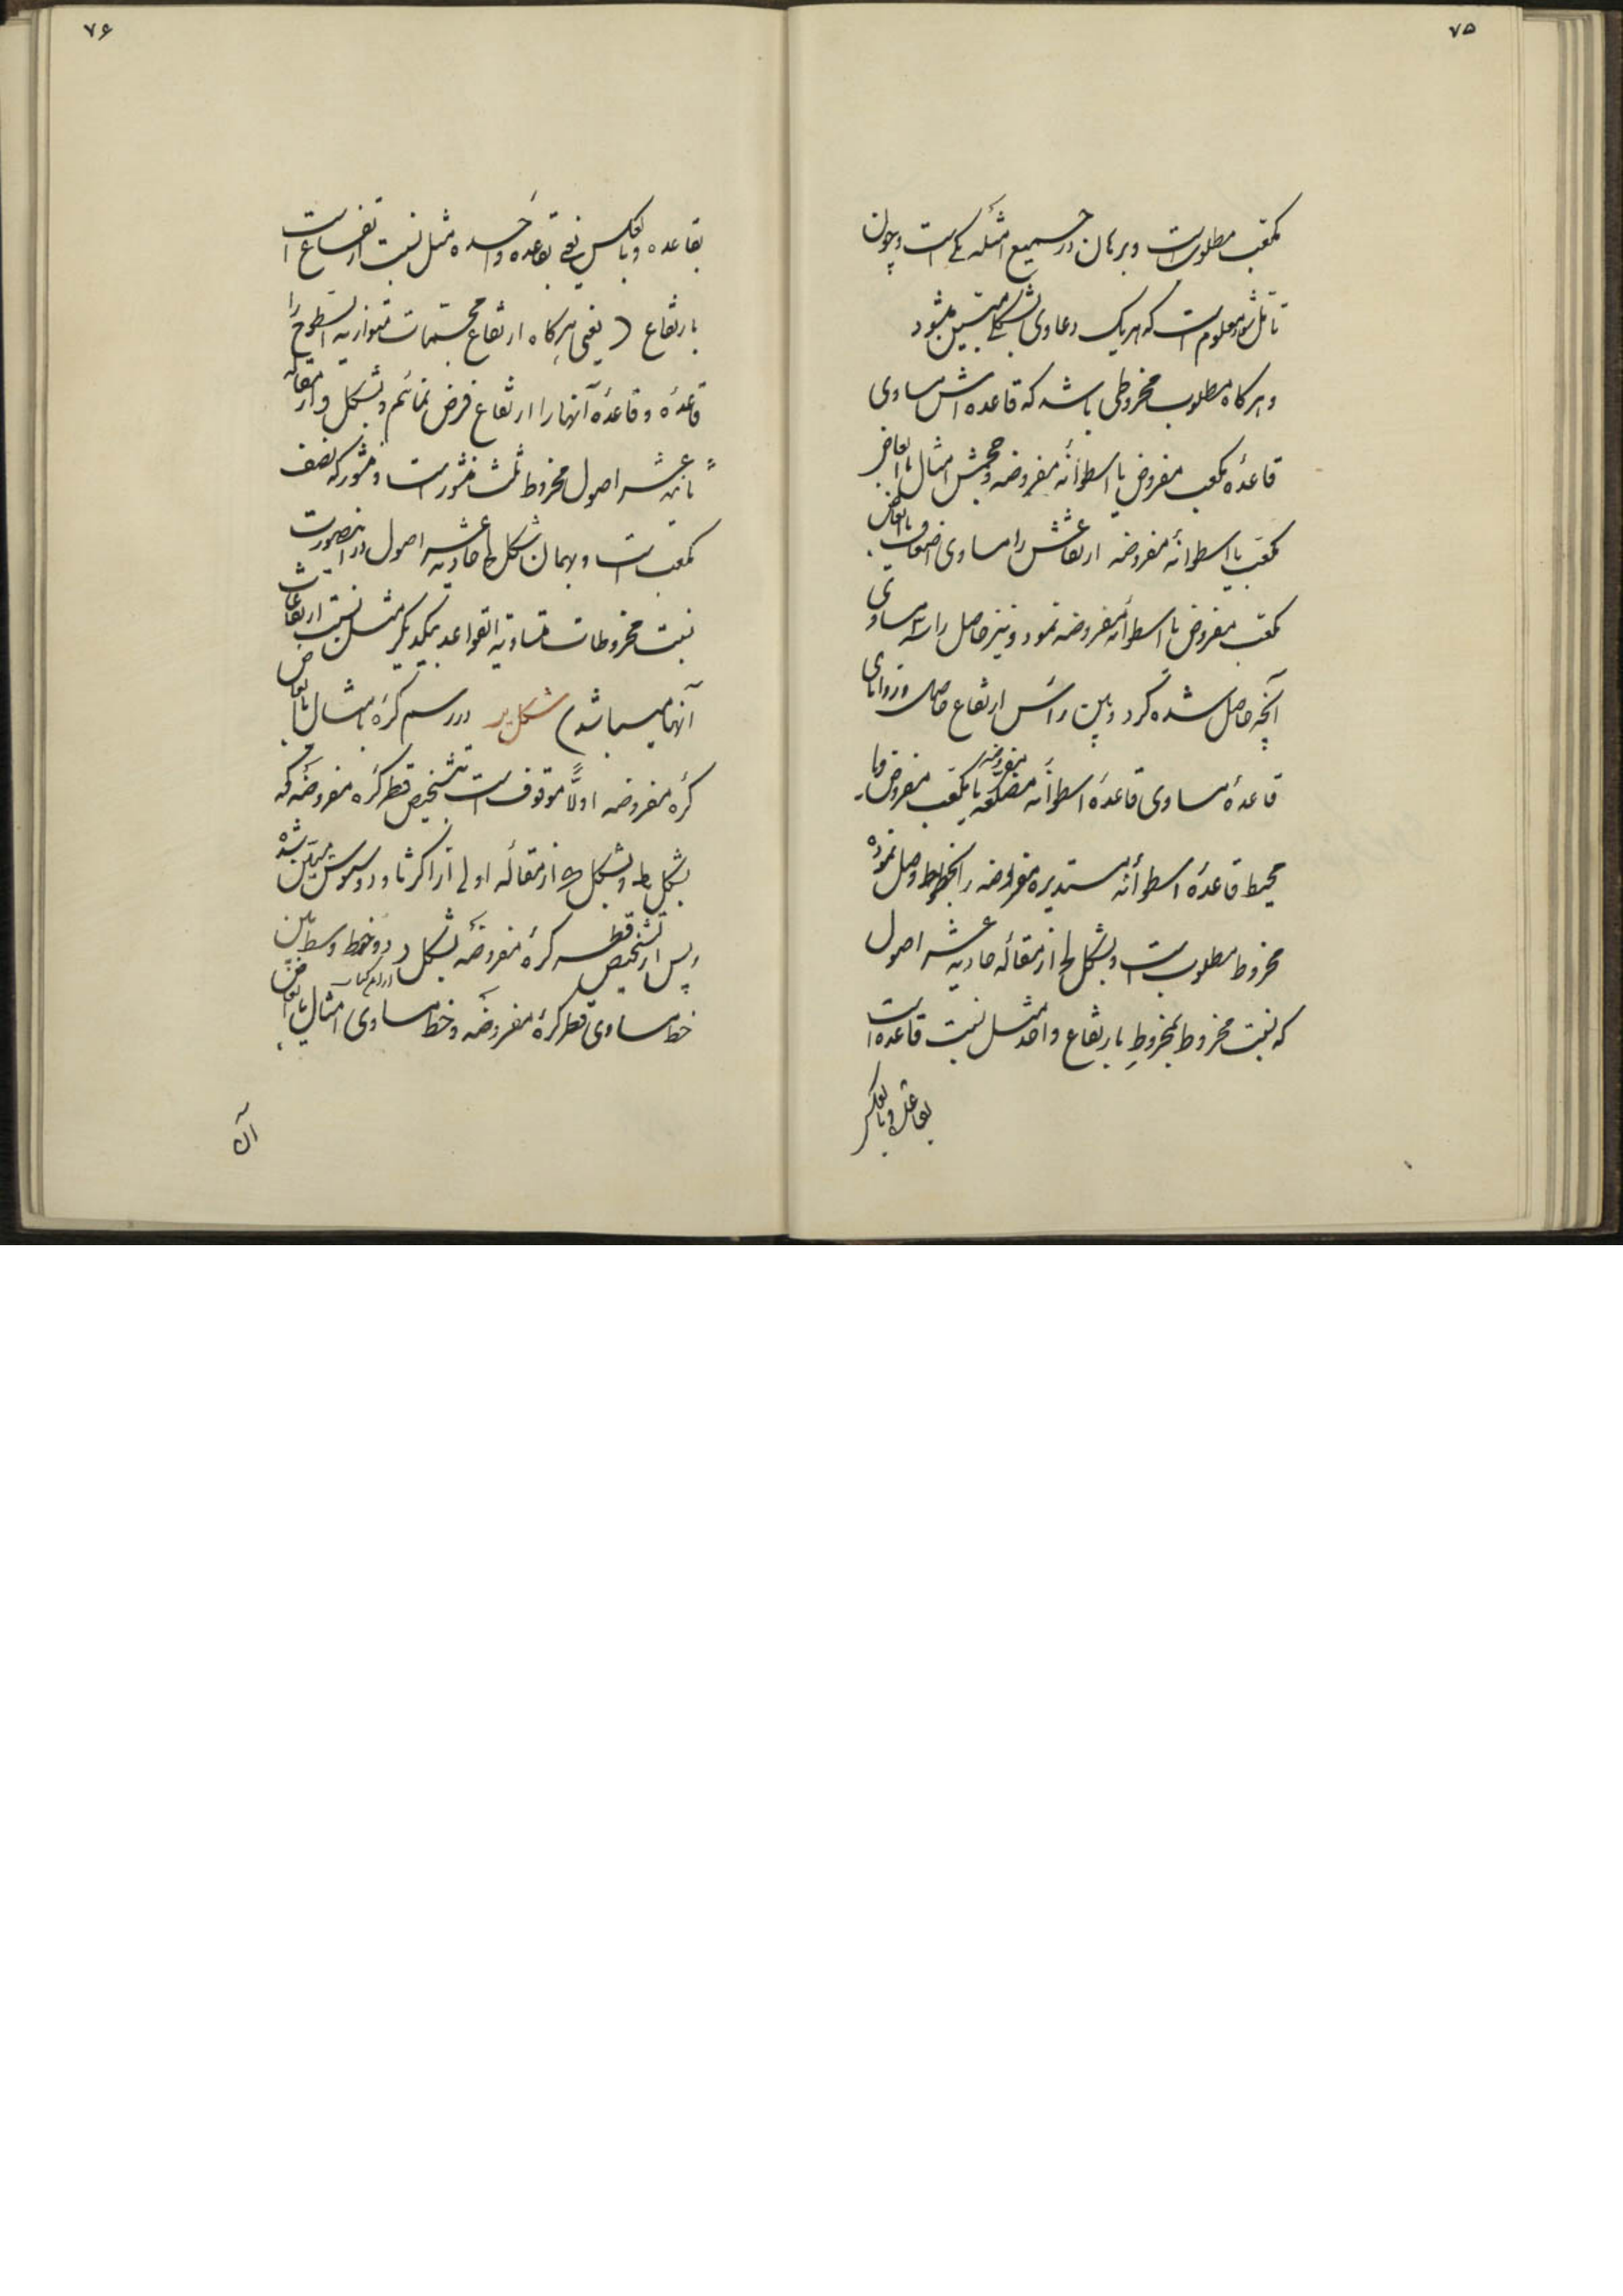 ۷۵
مکعب مطلوبست و برهان در جمیع امثله یکی است و چون
تأمل شود معلومست که هریک دعاوی بشکلی مبین میشود
و هرکاه مطلوب مخروطی باشد که قاعده اش مساوی
قاعدهٔ مکعب مفروض یا اسطوانهٔ مفروضه و حجمش امثال یا ابعاض
مکعب یا اسطوانهٔ مفروضه ارتفاعش را مساوی اضعاف یا ابعاض
مکعب مفروض یا اسطوانهٔ مفروضه نمود و نیز حاصل را سه مساوی
آنچه حاصل شده کرد و بین رأس ارتفاع حاصل و زوایای
قاعدهٔ مساوی قاعدهٔ اسطوانهٔ مضلعهٔ مفروضه یا مکعب مفروض و یا
محیط قاعدهٔ اسطوانهٔ مستدیرهٔ مفروضه را بخطوط وصل نموده
مخروط مطلوبست و بشکل لح از مقالهٔ حادیه عشر اصول
که نسبت مخروط بمخروط بارتفاع واحد مثل نسبت قاعده است
بقاعده و بالعکس
۷۶
بقاعده و بالعکس یعنی بقاعده واحده مثل نسبت ارتفاع است
بارتفاع (یعنی هرکاه ارتفاع مجسمات متوازیه السطوح را
قاعده و قاعدهٔ آنها را ارتفاع فرض نمائیم و بشکل و از مقاله
ثانیه عشر اصول مخروط ثلث منشور است و منشور که نصف
مکعب است و بهمان شکل حادیه عشر اصول در اینصورت
نسبت مخروطات متساویة القواعد بیکدیگر مثل نسبت ارتفاعات
آنها میباشد) شکل ید در رسم کره بامثال یا ابعاض
کره مفروضه اولاً موقوفست بتشخیص قطر کره مفروضه که
بشکل یط و بشکل از مقالهٔ اولی از اکر ثاودوسیوس مبین شده
پس از تشخیص قطر کرهٔ مفروضه بشکل د از این کتاب دو خط وسط بین
خط مساوی قطر کرهٔ مفروضه و خط مساوی امثال یا ابعاض
آن